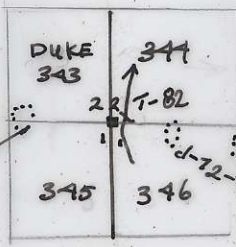 DUKE
343
344
22
T-82
11
d-72-
345
346